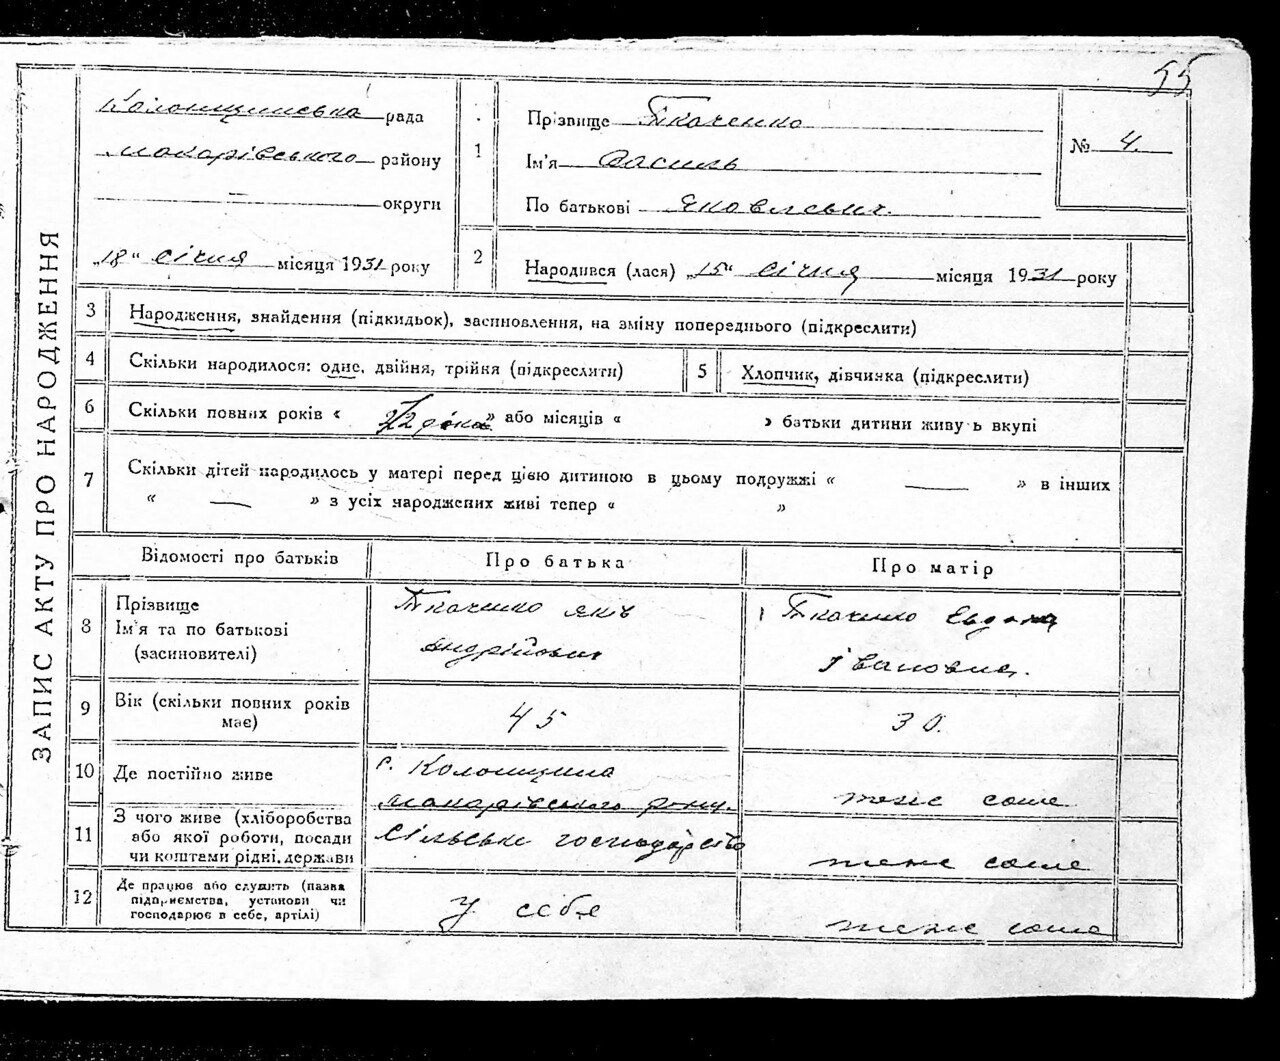 55
ЗАПИС АКТУ ПРО НАРОДЖЕННЯ
Колонщинська рада
Макарівського району
— округи
„18" січня місяця 1931 року
1
Прізвище Ткаченко
Ім'я Василь
По батькові Яковлевич.
№ 4.
2
Народився (лася) „15" січня місяця 1931 року
3
Народження, знайдення (підкидьок), засиновлення, на зміну попереднього (підкреслити)
4
Скільки народилося: одне, двійня, трійня (підкреслити)
5
Хлопчик, дівчинка (підкреслити)
6
Скільки повних років « роки » або місяців « » батьки дитини живуть вкупі
7
Скільки дітей народилось у матері перед цією дитиною в цьому подружжі « — » в інших
« — » з усіх народжених живі тепер « »
Відомості про батьків
Про батька
Про матір
8
Прізвище
Ім'я та по батькові
(засиновителі)
Ткаченко Яків
Андрійович
Ткаченко Евдокия
Івановна.
9
Вік (скільки повних років
має)
45
30.
10
Де постійно живе
с. Колонщина
Макарівського району.
теж саме
11
З чого живе (хліборобства
або якої роботи, посади
чи коштами рідні, держави
Сільське господарство
теж саме
12
Де працює або служить (назва
підприємства, установи чи
господарює в себе, артілі)
У себе
теж саме